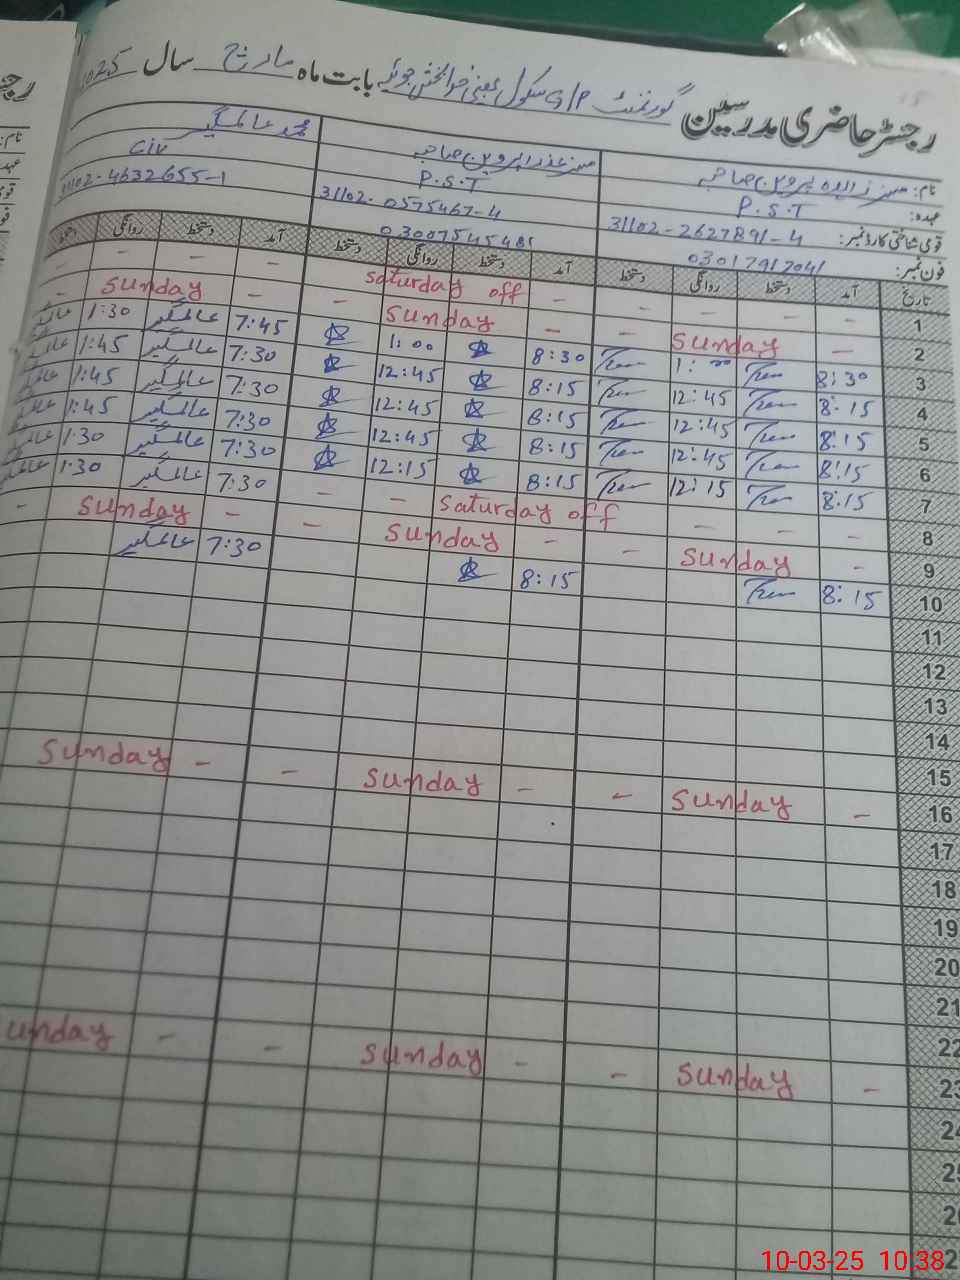 رجسٹر حاضری مدرسین گورنمنٹ G/P سکول بابت ماہ مارچ سال 2025
نام: مسز زاہدہ پروین صاحبہ مسز عذرا پروین صاحبہ محمد عالمگیر
عہدہ: P.S.T P.S.T CIV
قومی شناختی کارڈ نمبر: 31102-2627891-4 31102-0575467-4 31102-4632655-1
فون نمبر: 03017917041 03007545481
تاریخ آمد دستخط روانگی دستخط آمد دستخط روانگی دستخط آمد دستخط روانگی دستخط
1 - - - - - saturday off - - - -
2 - sunday - - sunday - - sunday -
3 8:30 1:00 8:30 1:00 7:45 عالمگیر 1:30
4 8:15 12:45 8:15 12:45 7:30 عالمگیر 1:45
5 8:15 12:45 8:15 12:45 7:30 عالمگیر 1:45
6 8:15 12:45 8:15 12:45 7:30 عالمگیر 1:45
7 8:15 12:15 8:15 12:15 7:30 عالمگیر 1:30
8 - - - saturday off - - 7:30 عالمگیر 1:30
9 - sunday - - sunday - - sunday -
10 8:15 8:15 7:30 عالمگیر
11
12
13
14
15
16 - sunday - - sunday - - sunday
17
18
19
20
21
22
23 - sunday - - sunday - - unday
24
10-03-25 10:38